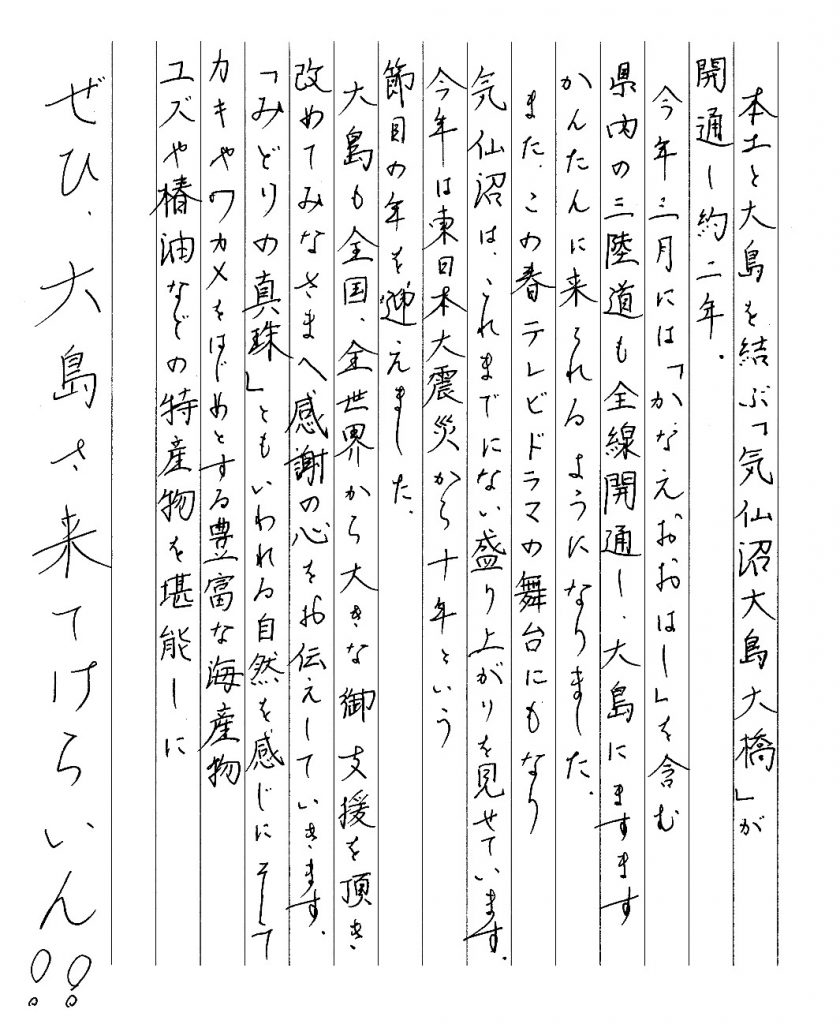 本土と大島を結ぶ「気仙沼大島大橋」が
開通し約二年。
今年三月には「かなえおおはし」を含む
県内の三陸道も全線開通し、大島にますます
かんたんに来られるようになりました。
また、この春テレビドラマの舞台にもなり
気仙沼は、これまでにない盛り上がりを見せています。
今年は東日本大震災から十年という
節目の年を迎えました。
大島も全国、全世界から大きな御支援を頂き
改めてみなさまへ感謝の心をお伝えしていきます。
「みどりの真珠」ともいわれる自然を感じにそして
カキやワカメをはじめとする豊富な海産物
ユズや椿油などの特産物を堪能しに
ぜひ、大島さ来てけらいん!!